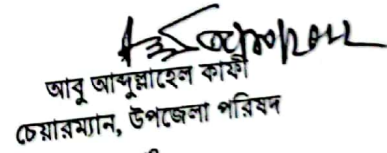 আবু আব্দুল্লাহেল কাফী
চেয়ারম্যান, উপজেলা পরিষদ